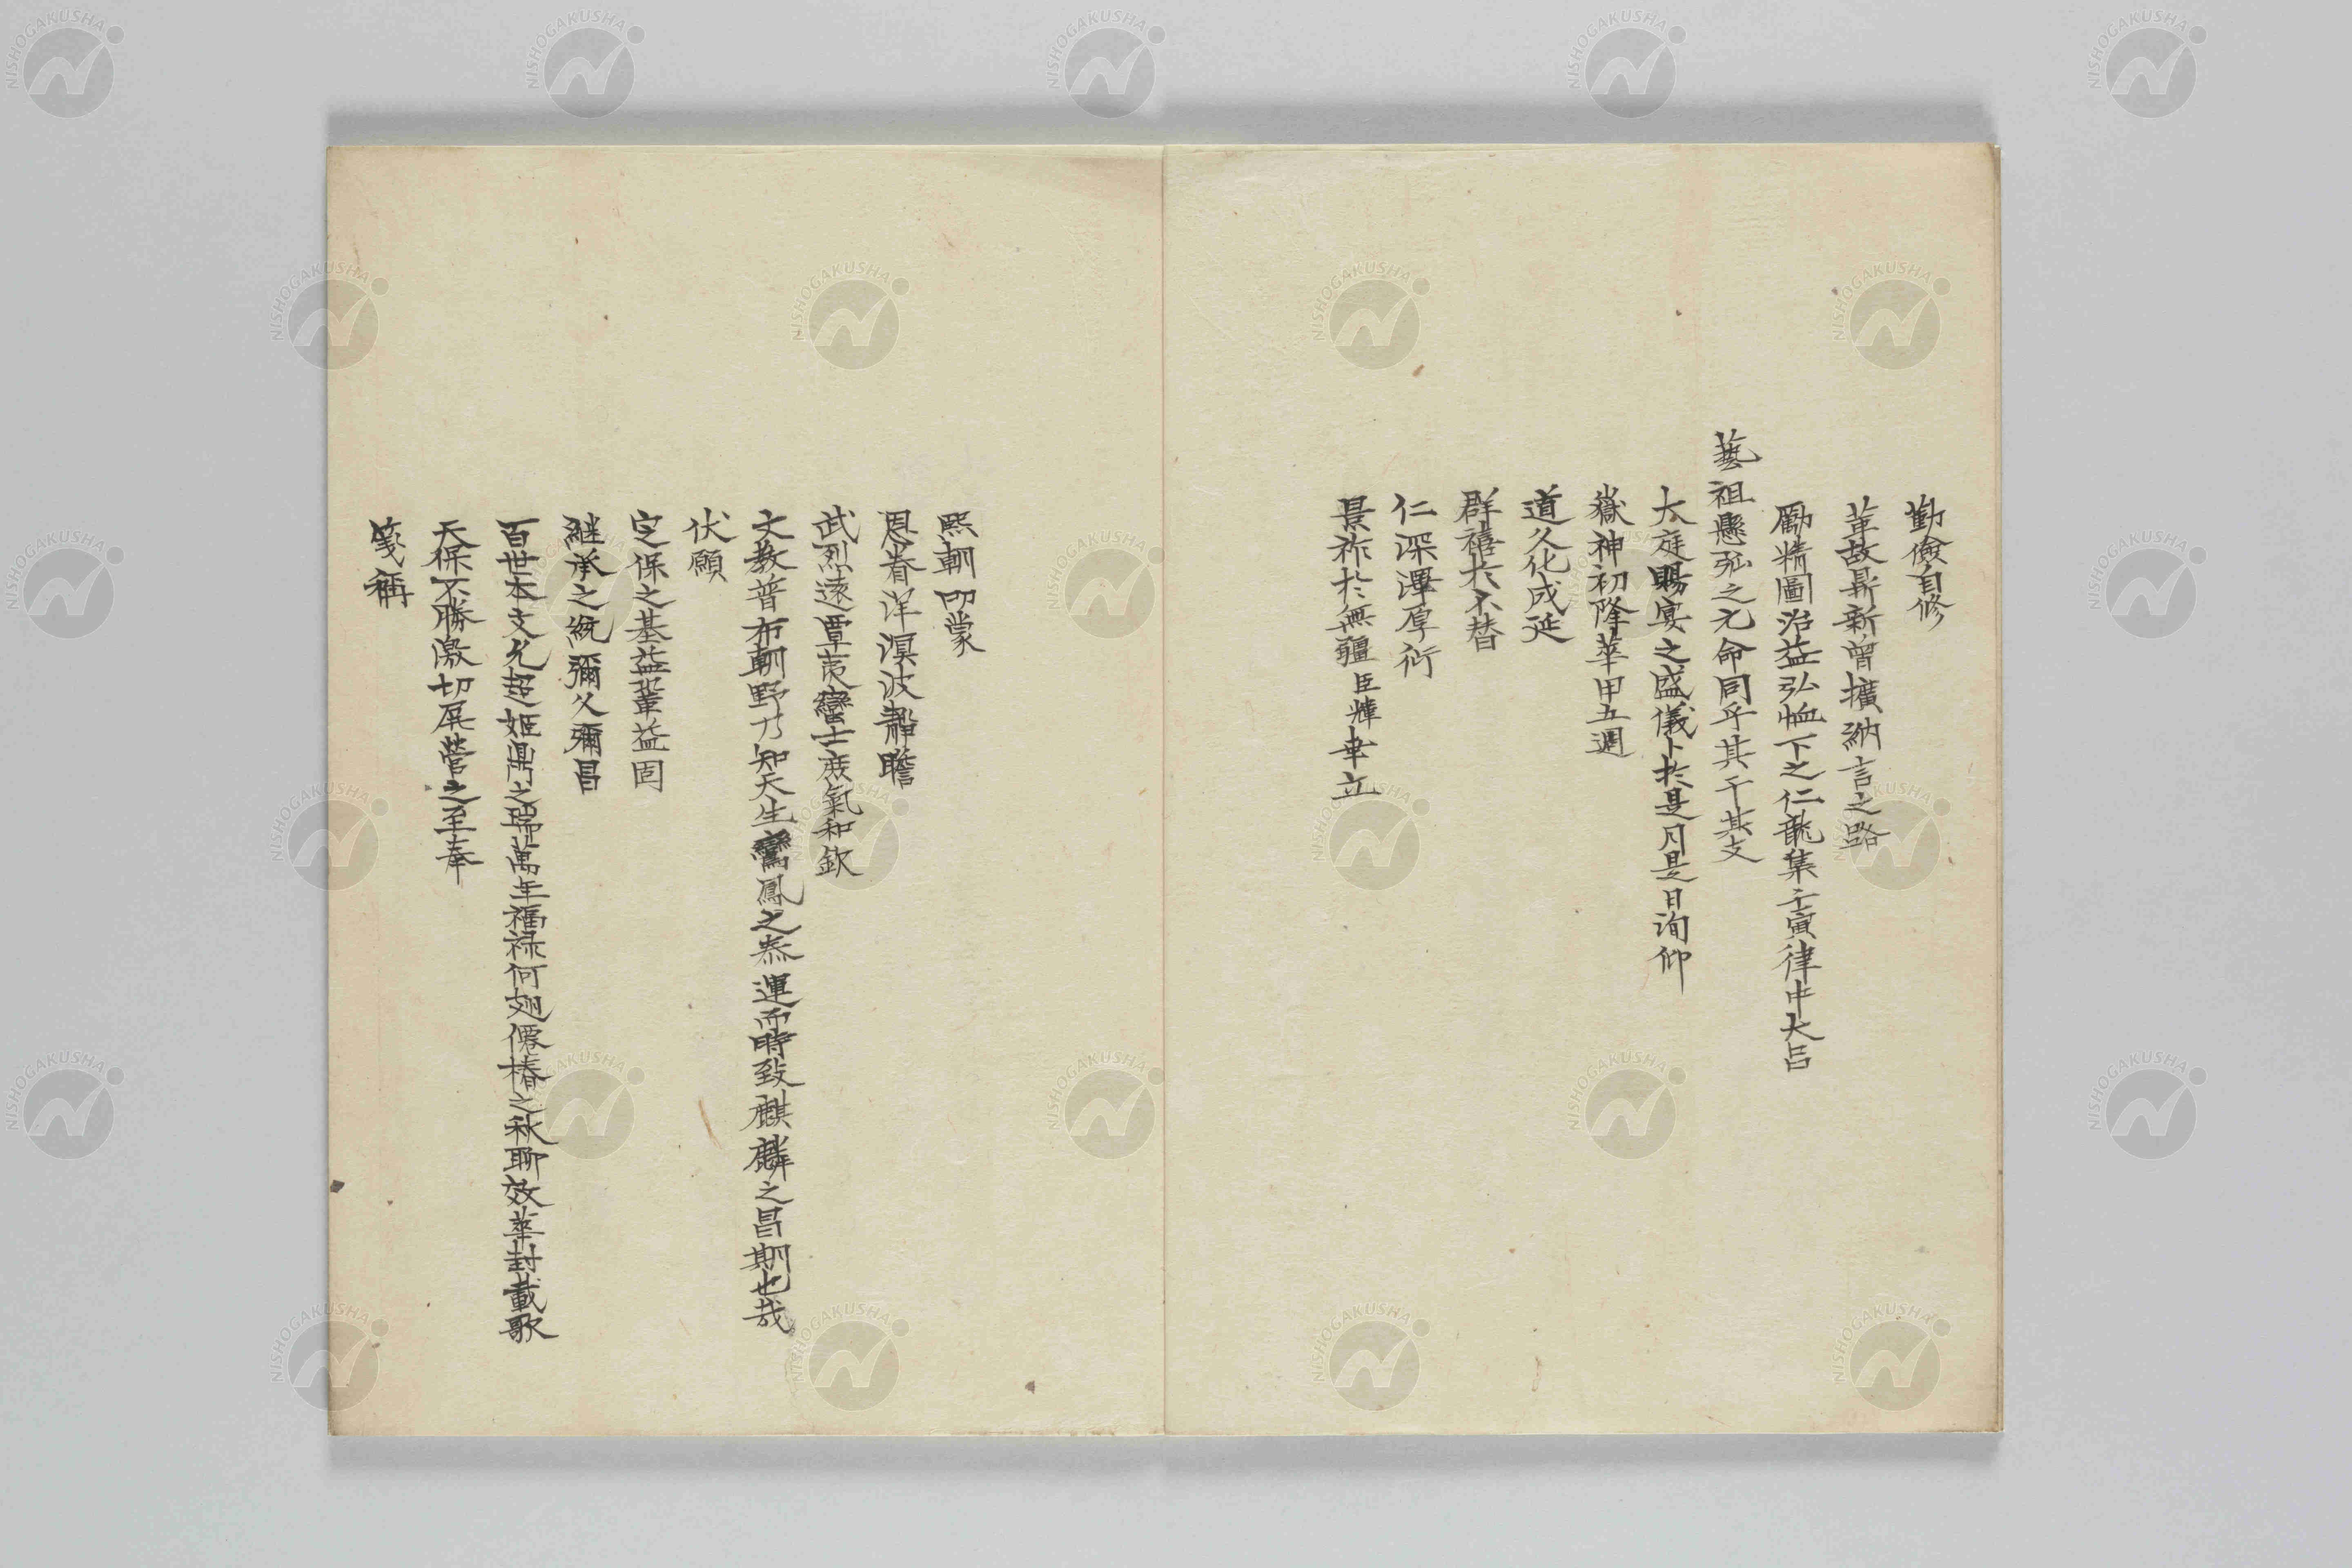 勤儉自修
革故鼎新曽擴納言之路
勵精圖治益弘恤下之仁龍集壬寅律中大呂
藝祖懸弧之元命同乎其干其支
大庭賜宴之盛儀卜於是月是日洵仰
嶽神初降華甲五週
道久化成延
群禧於不替
仁深澤厚衍
景祚於無疆臣輝幸立
熙朝叨蒙
恩眷洋溟波靜瞻
武烈遠覃夷蠻士庶氣和欽
文教普布朝野乃知天生鸞鳳之泰運而時致麒麟之昌期也哉
伏願
定保之基益鞏益固
継承之統彌久彌昌
百世本支允超姬鼎之瑞萬年福禄何翅僊椿之秋聊效華封載歌
天保不勝激切屏營之至奉
箋稱
NISHOGAKUSHA